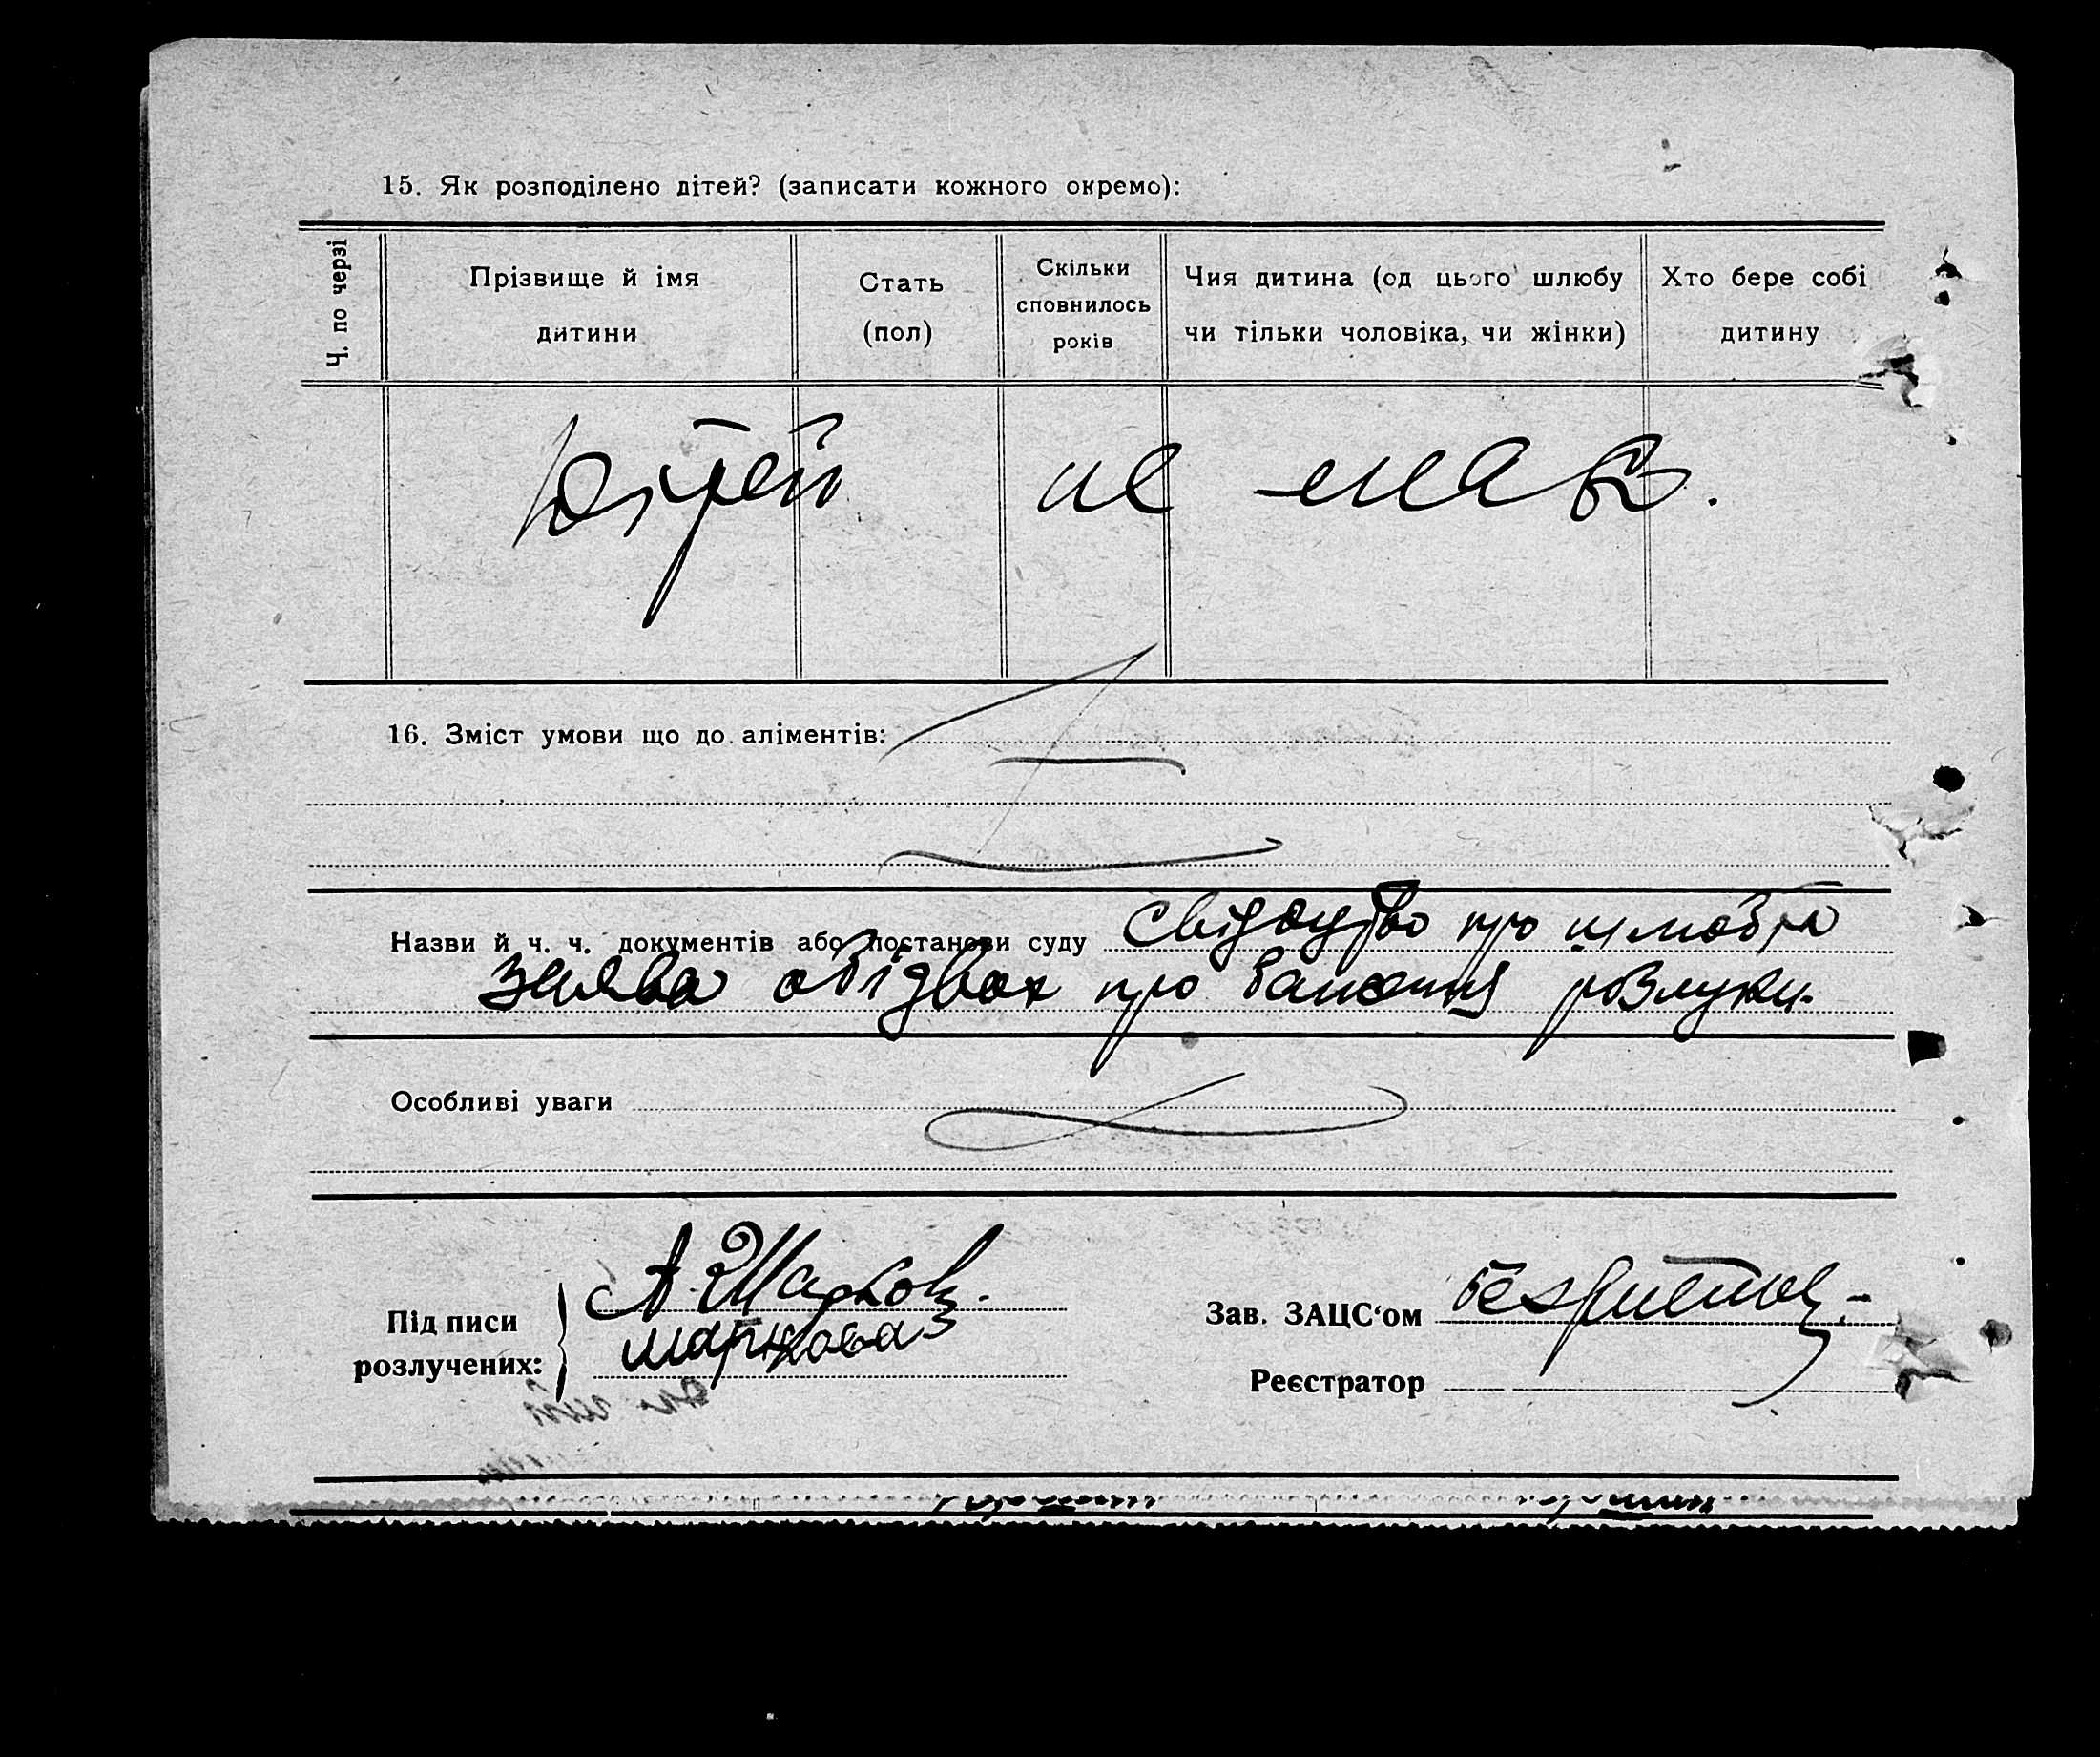 15. Як розподілено дітей? (записати кожного окремо):
Ч. по черзі
Прізвище й імя дитини
Стать (пол)
Скільки сповнилось років
Чия дитина (од цього шлюбу чи тільки чоловіка, чи жінки)
Хто бере собі дитину
Дітей не має.
16. Зміст умови що до аліментів:
Назви й ч. ч. документів або постанови суду свідоцтво про шлюб та
заява обідвох про бажання розлуки.
Особливі уваги
Підписи
розлучених:
А. Жарков
Жаркова
Зав. ЗАЦС‘ом
Реєстратор